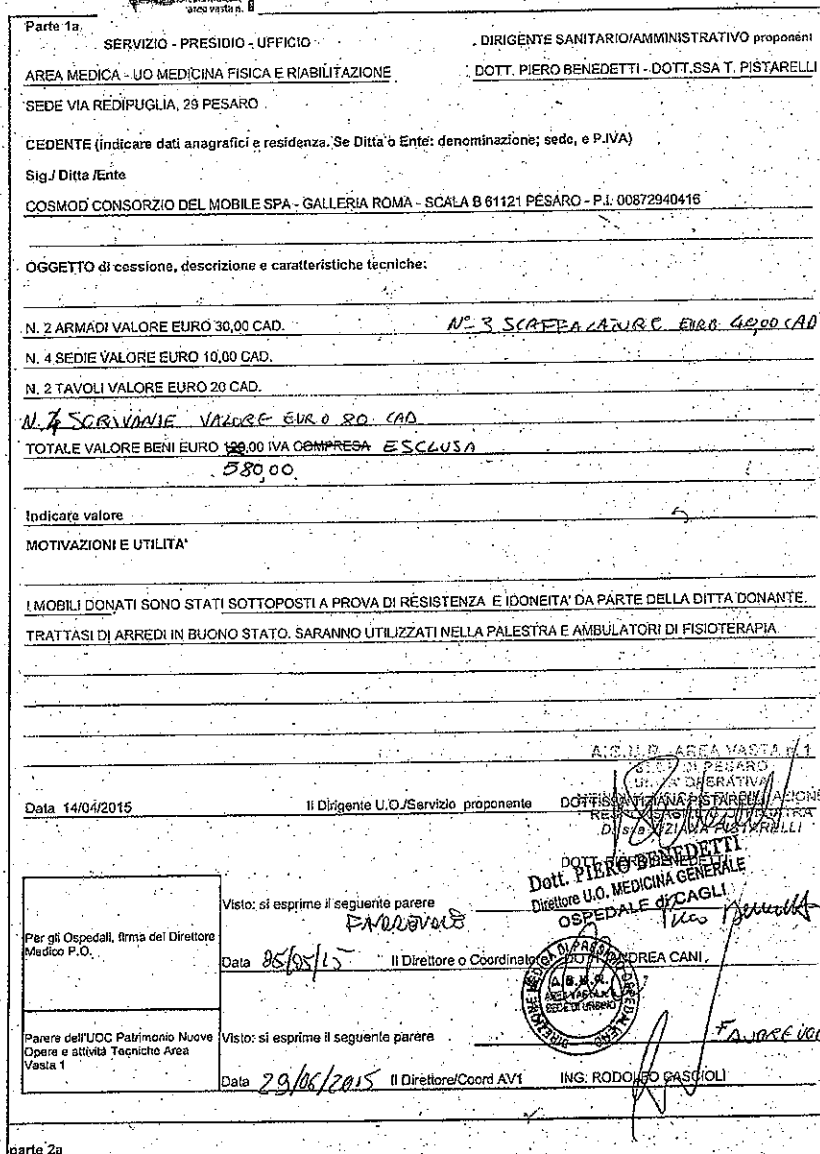 area vasta n.
Parte 1a
SERVIZIO - PRESIDIO - UFFICIO
DIRIGENTE SANITARIO/AMMINISTRATIVO proponent
AREA MEDICA - UO MEDICINA FISICA E RIABILITAZIONE
DOTT. PIERO BENEDETTI - DOTT.SSA T. PISTARELLI
SEDE VIA REDIPUGLIA, 29 PESARO
CEDENTE (indicare dati anagrafici e residenza. Se Ditta o Ente: denominazione; sede, e P.IVA)
Sig./ Ditta /Ente
COSMOD CONSORZIO DEL MOBILE SPA - GALLERIA ROMA - SCALA B 61121 PESARO - P.I. 00872940416
OGGETTO di cessione, descrizione e caratteristiche tecniche:
N. 2 ARMADI VALORE EURO 30,00 CAD.
N° 3 SCAFFALATURE EURO 40,00 CAD
N. 4 SEDIE VALORE EURO 10,00 CAD.
N. 2 TAVOLI VALORE EURO 20 CAD.
N. 4 SCRIVANIE VALORE EURO 80 CAD
TOTALE VALORE BENI EURO ,00 IVA COMPRESA ESCLUSA
580,00
Indicare valore
MOTIVAZIONI E UTILITA'
I MOBILI DONATI SONO STATI SOTTOPOSTI A PROVA DI RESISTENZA E IDONEITA' DA PARTE DELLA DITTA DONANTE.
TRATTASI DI ARREDI IN BUONO STATO. SARANNO UTILIZZATI NELLA PALESTRA E AMBULATORI DI FISIOTERAPIA
A.S.U.R. AREA VASTA n. 1
DI PESARO
OPERATIVA
Data 14/04/2015
Il Dirigente U.O./Servizio proponente
DOTT.SSA TIZIANA PISTARELLI
TIZIANA PISTARELLI
DOTT. PIERO BENEDETTI
Dott. PIERO BENEDETTI
Direttore U.O. MEDICINA GENERALE
OSPEDALE di CAGLI
Per gli Ospedali, firma del Direttore Medico P.O.
Visto: si esprime il seguente parere
FAVOREVOLE
Data 25/05/15 Il Direttore o Coordinatore DOTT. ANDREA CANI
DIREZIONE MEDICA DI PRESIDIO OSPEDALIERO
A.S.U.R.
AREA VASTA N. 1
SEDE DI URBINO
Parere dell'UOC Patrimonio Nuove Opere e attività Tecniche Area Vasta 1
Visto: si esprime il seguente parere
FAVOREVOL
Data 29/06/2015 Il Direttore/Coord AV1 ING. RODOLFO CASCIOLI
parte 2a